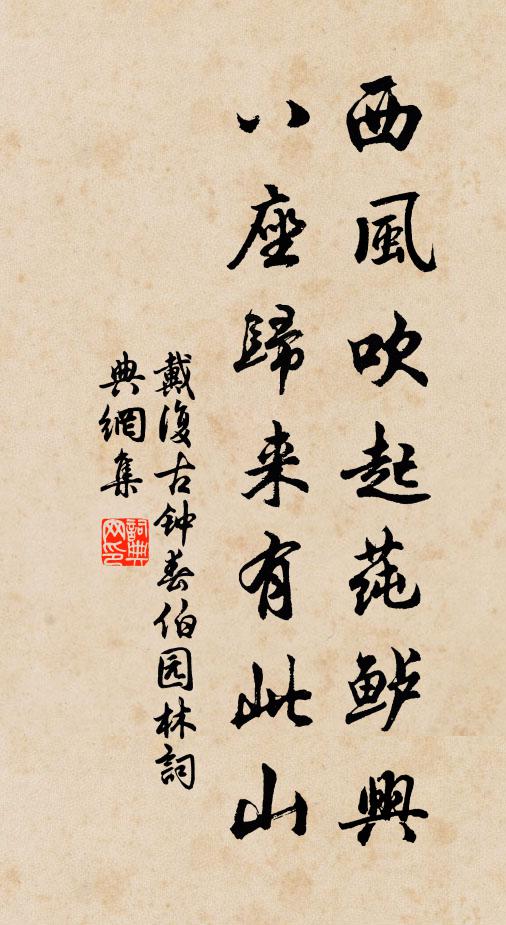 西風吹起莼鲈興
八座歸来有此山
戴復古钟春伯园林詞
典網集
詞典网印